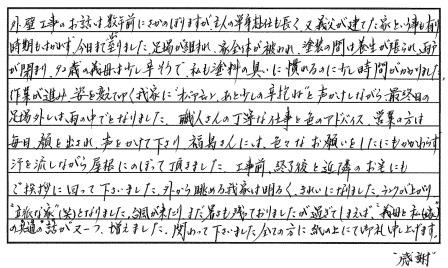 外壁工事のお話は数年前にさかのぼりますが主人の単身赴任も長く、又義父が建てた家という事も有り
時期もわからず、今日まで至りました。足場が組まれ、家全体が被われ、塗装の間は養生が張られ、雨戸
が閉まり、92歳の義母は少し辛そうで、私も塗料の臭いに慣れるのに少し時間がかかりました。
作業が進み、姿を変えてゆく我家に"おばあちゃん、あと少しの辛抱ね"と声かけしながら、最終日の
足場外しは雨の中でとなりました。職人さんの丁寧な仕事と色のアドバイス、営業の方は
毎日顔を出され、声をかけて下さり福島さんには、色々なお願いをしたにもかかわらず
汗を流しながら屋根にのぼって頂きました。工事前、終了後と近隣のお宅にも
ご挨拶に回って下さいました。外から眺める我家は明るく、きれいになりました。ランクが上がり
"立派な家"(笑)となりました。台風が来たり、まだ暑さも残っておりましたが過ぎてしまえば、"義母と私(嫁)
の共通の"話が又一つ、増えました。関わって下さいました全ての方に紙の上にて御礼申し上げます。
"感謝"